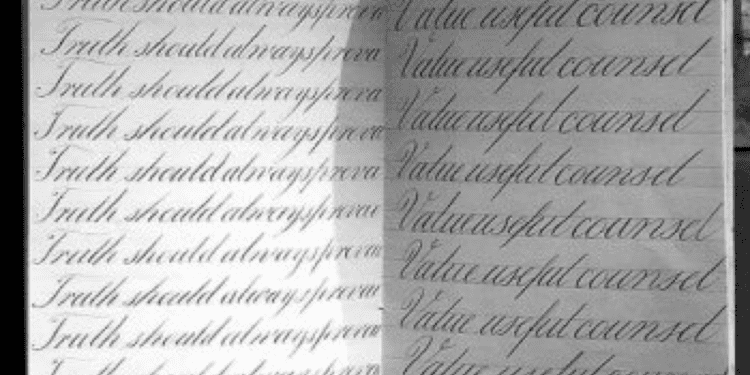 Truth should always preva
Truth should always preva
Truth should always preva
Truth should always preva
Truth should always preva
Truth should always prevai
Truth should always preva
Truth should always prevai
Truth should always preva
Truth should always
Value useful counsel
Value useful counsel
Value useful counsel
Value useful counsel
Value useful counsel
Value useful counsel
Value useful counsel
Value useful counsel